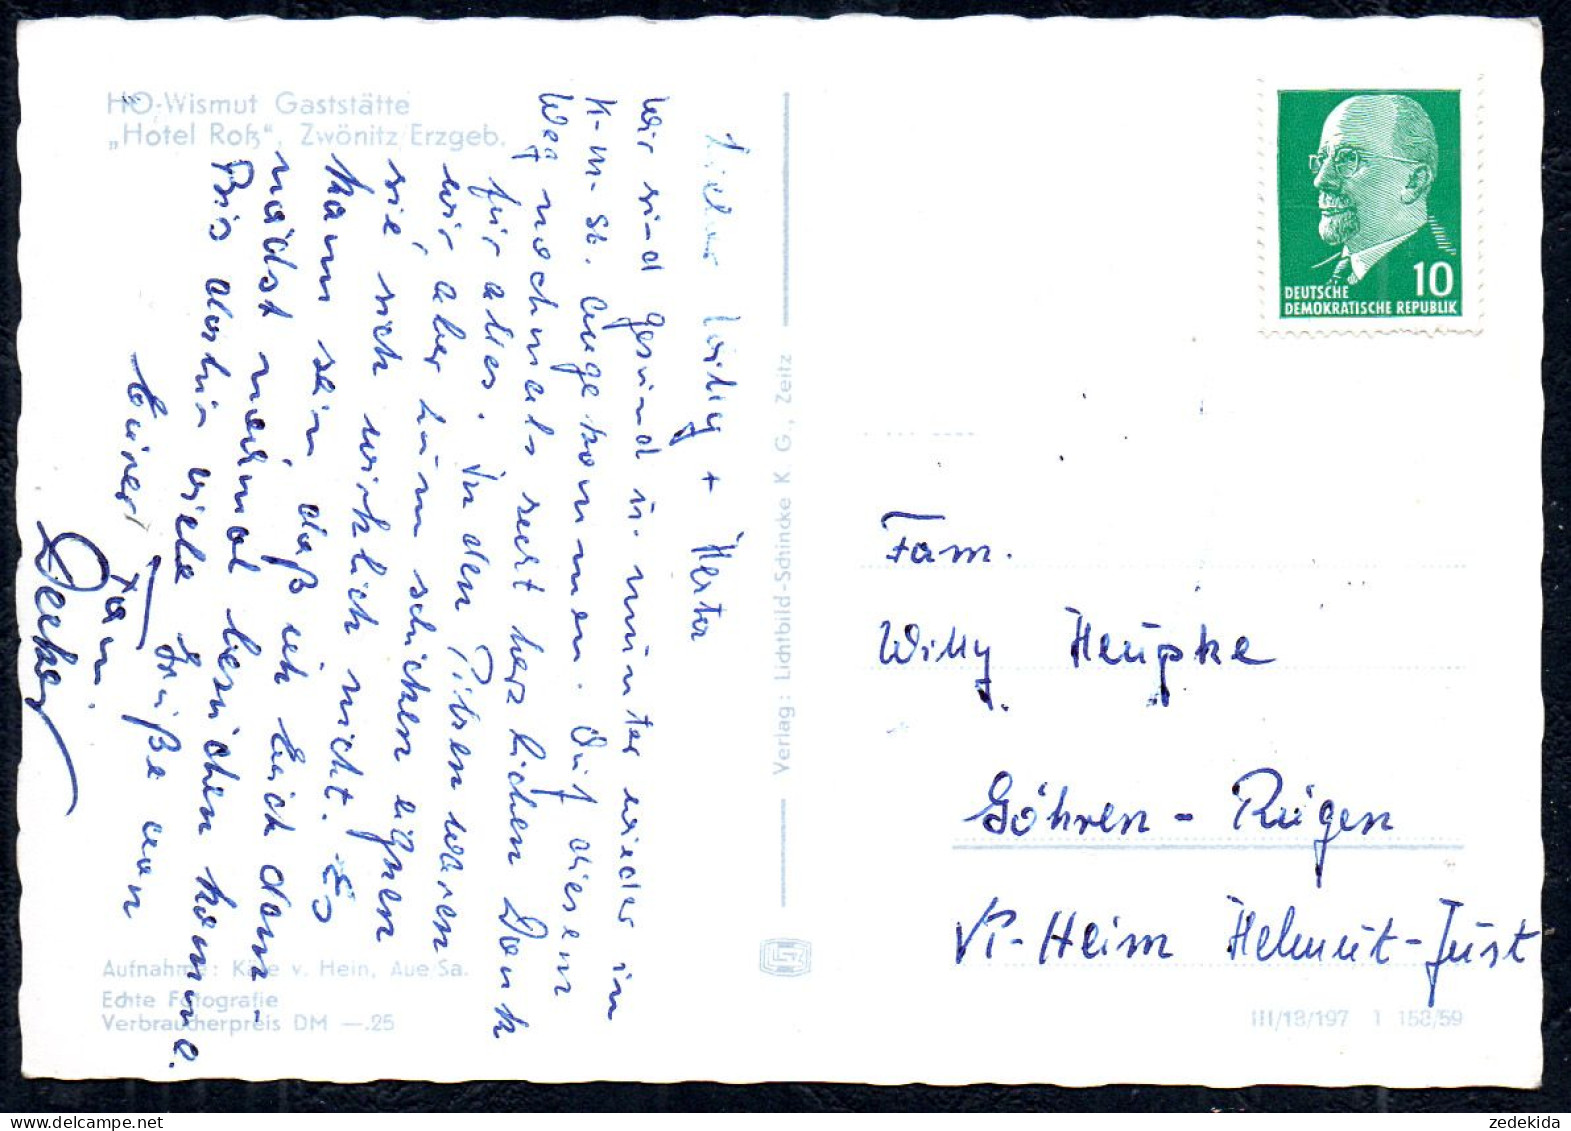 HO-Wismut Gaststätte
„Hotel Roß“, Zwönitz/Erzgeb.
Lieber Willy + Herta
Wir sind gesund u. munter wieder in
K-M-St. angekommen. Auf diesem
Weg nochmals recht herzlichen Dank
für alles. In den Pilsen waren
wir aber kann schicken
sie sich wirklich nicht. Es
kann sein daß ich Euch dem-
nächst nochmal besuchen komme.
Bis dahin viele Grüße von
Eurer Fam.
Decker
Aufnahme: Käte v. Hein, Aue/Sa.
Echte Fotografie
Verbraucherpreis DM —.25
Verlag: Lichtbild-Schincke K. G., Zeitz
10
DEUTSCHE
DEMOKRATISCHE REPUBLIK
Fam.
Willy Heupke
Göhren - Rügen
VP-Heim Helmut-Just
III/18/197 1 158/59
zedekida